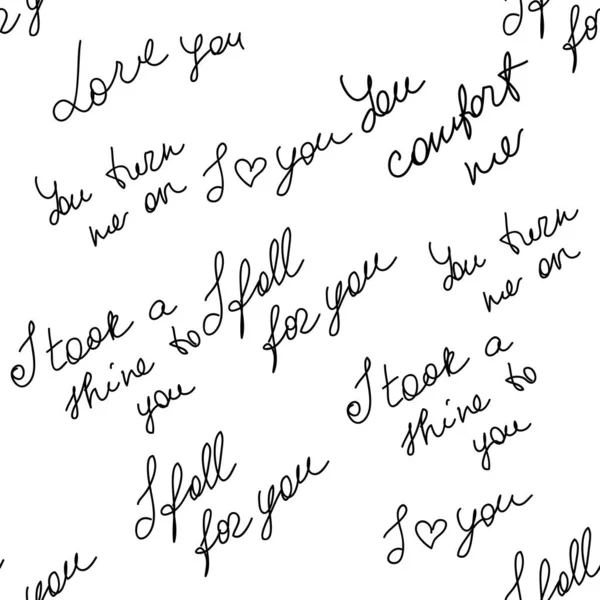 Love you
You turn
me on
I ♡ you
You
comfort
me
I took a
shine to
you
I fall
for you
You turn
me on
I took a
shine to
you
I fall
for you
I ♡ you
you
I fall